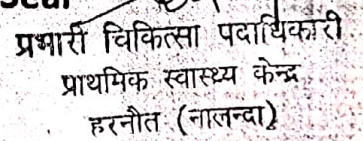 Seal
प्रभारी चिकित्सा पदाधिकारी
प्राथमिक स्वास्थ्य केन्द्र
हरनौत (नालन्दा)